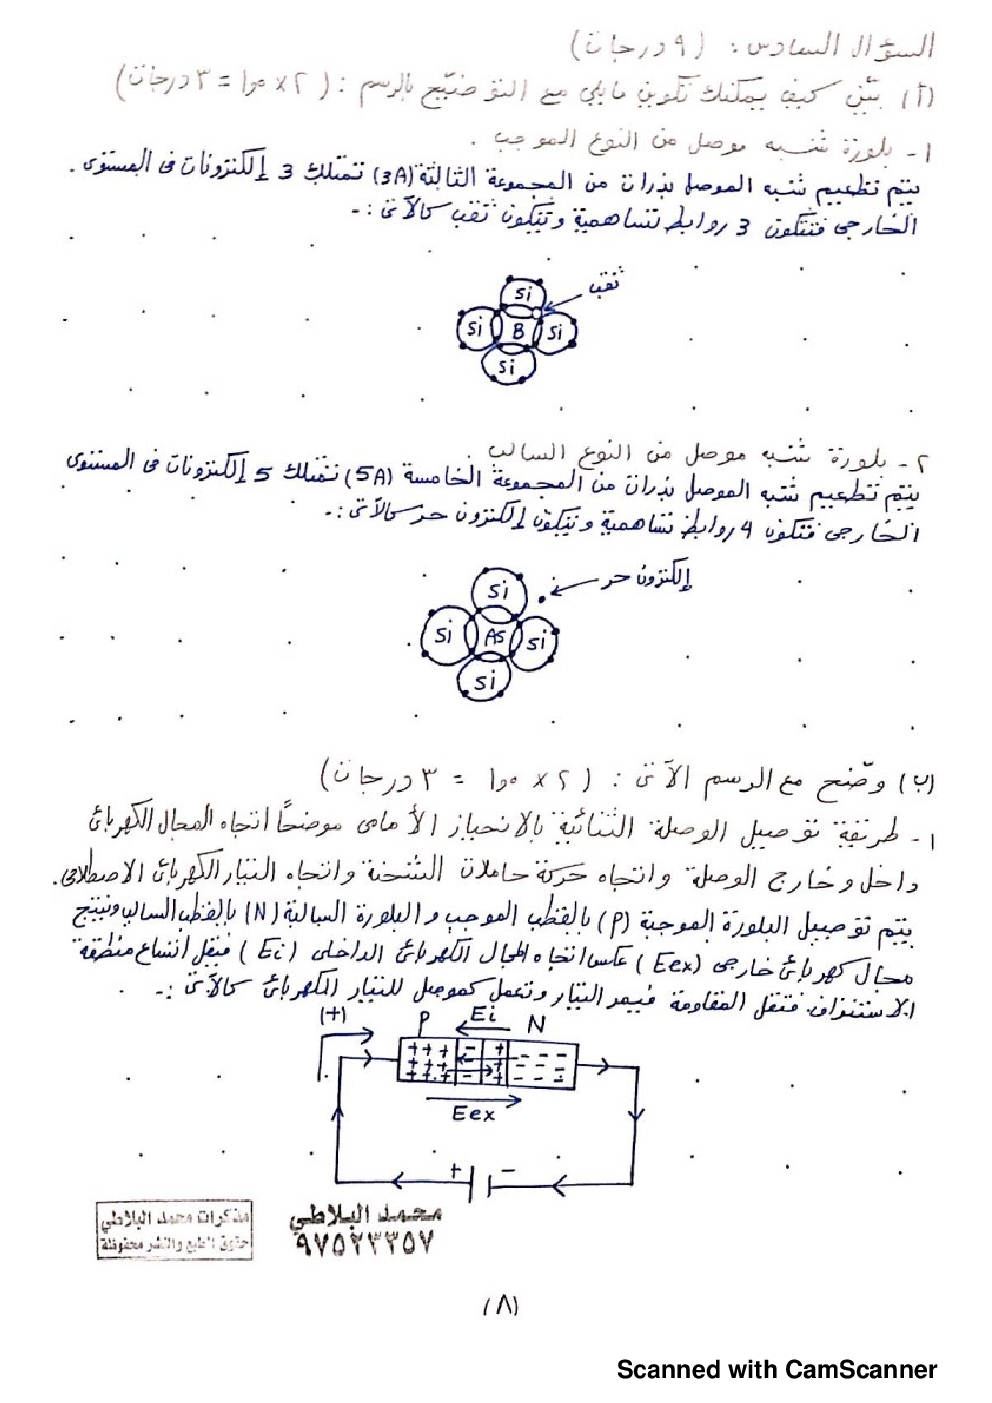 السؤال السادس : (٩ درجات)
(أ) بيّن كيف يمكنك تكوين ما يلي مع التوضيح بالرسم : (٢ × ١٫٥ = ٣ درجات)
١- بلورة شبه موصل من النوع الموجب .
يتم تطعيم شبه الموصل بذرات من المجموعة الثالثة (3A) تمتلك 3 إلكترونات في المستوى
الخارجي فتتكون 3 روابط تساهمية وتتكون ثقب كالآتي :-
ثقب
Si
Si B Si
Si
٢- بلورة شبه موصل من النوع السالب
يتم تطعيم شبه الموصل بذرات من المجموعة الخامسة (5A) تمتلك 5 إلكترونات في المستوى
الخارجي فتتكون 4 روابط تساهمية ويتكون إلكترون حر كالآتي :-
إلكترون حر
Si
Si AS Si
Si
(ب) وضّح مع الرسم الآتي : (٢ × ١٫٥ = ٣ درجات)
١- طريقة توصيل الوصلة الثنائية بالانحياز الأمامي موضحاً اتجاه المجال الكهربائي
داخل وخارج الوصلة واتجاه حركة حاملات الشحنة واتجاه التيار الكهربائي الاصطلاحي .
يتم توصيل البلورة الموجبة (P) بالقطب الموجب والبلورة السالبة (N) بالقطب السالب وينتج
مجال كهربائي خارجي (Eex) عكس اتجاه المجال الكهربائي الداخلي (Ei) فيقل اتساع منطقة
الاستنزاف فتقل المقاومة فيمر التيار وتعمل كموصل للتيار الكهربائي كالآتي :-
(+) P Ei N
+ + + - + - - -
+ + + + - - -
+ + + - + - - -
Eex
+ -
مذكرات محمد البلاطي
حقوق الطبع والنشر محفوظة
محمد البلاطي
٩٧٥٢٣٣٥٧
(٨)
Scanned with CamScanner